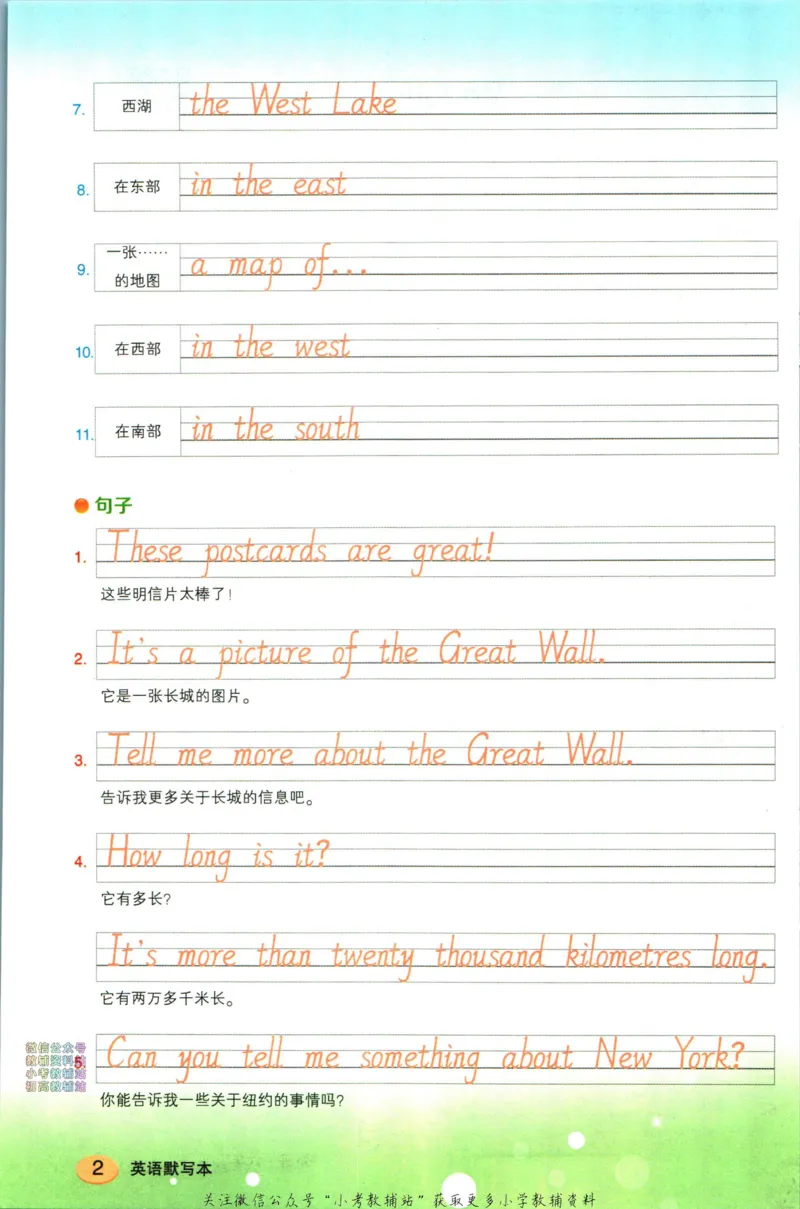 7. 西湖 the West Lake
8. 在东部 in the east
9. 一张……的地图 a map of...
10. 在西部 in the west
11. 在南部 in the south
句子
1. These postcards are great!
这些明信片太棒了!
2. It's a picture of the Great Wall.
它是一张长城的图片。
3. Tell me more about the Great Wall.
告诉我更多关于长城的信息吧。
4. How long is it?
它有多长?
It's more than twenty thousand kilometres long.
它有两万多千米长。
5. Can you tell me something about New York?
你能告诉我一些关于纽约的事情吗?
微信公众号
教辅资料站
小考教辅站
初高教辅站
2 英语默写本
关注微信公众号“小考教辅站”获取更多小学教辅资料